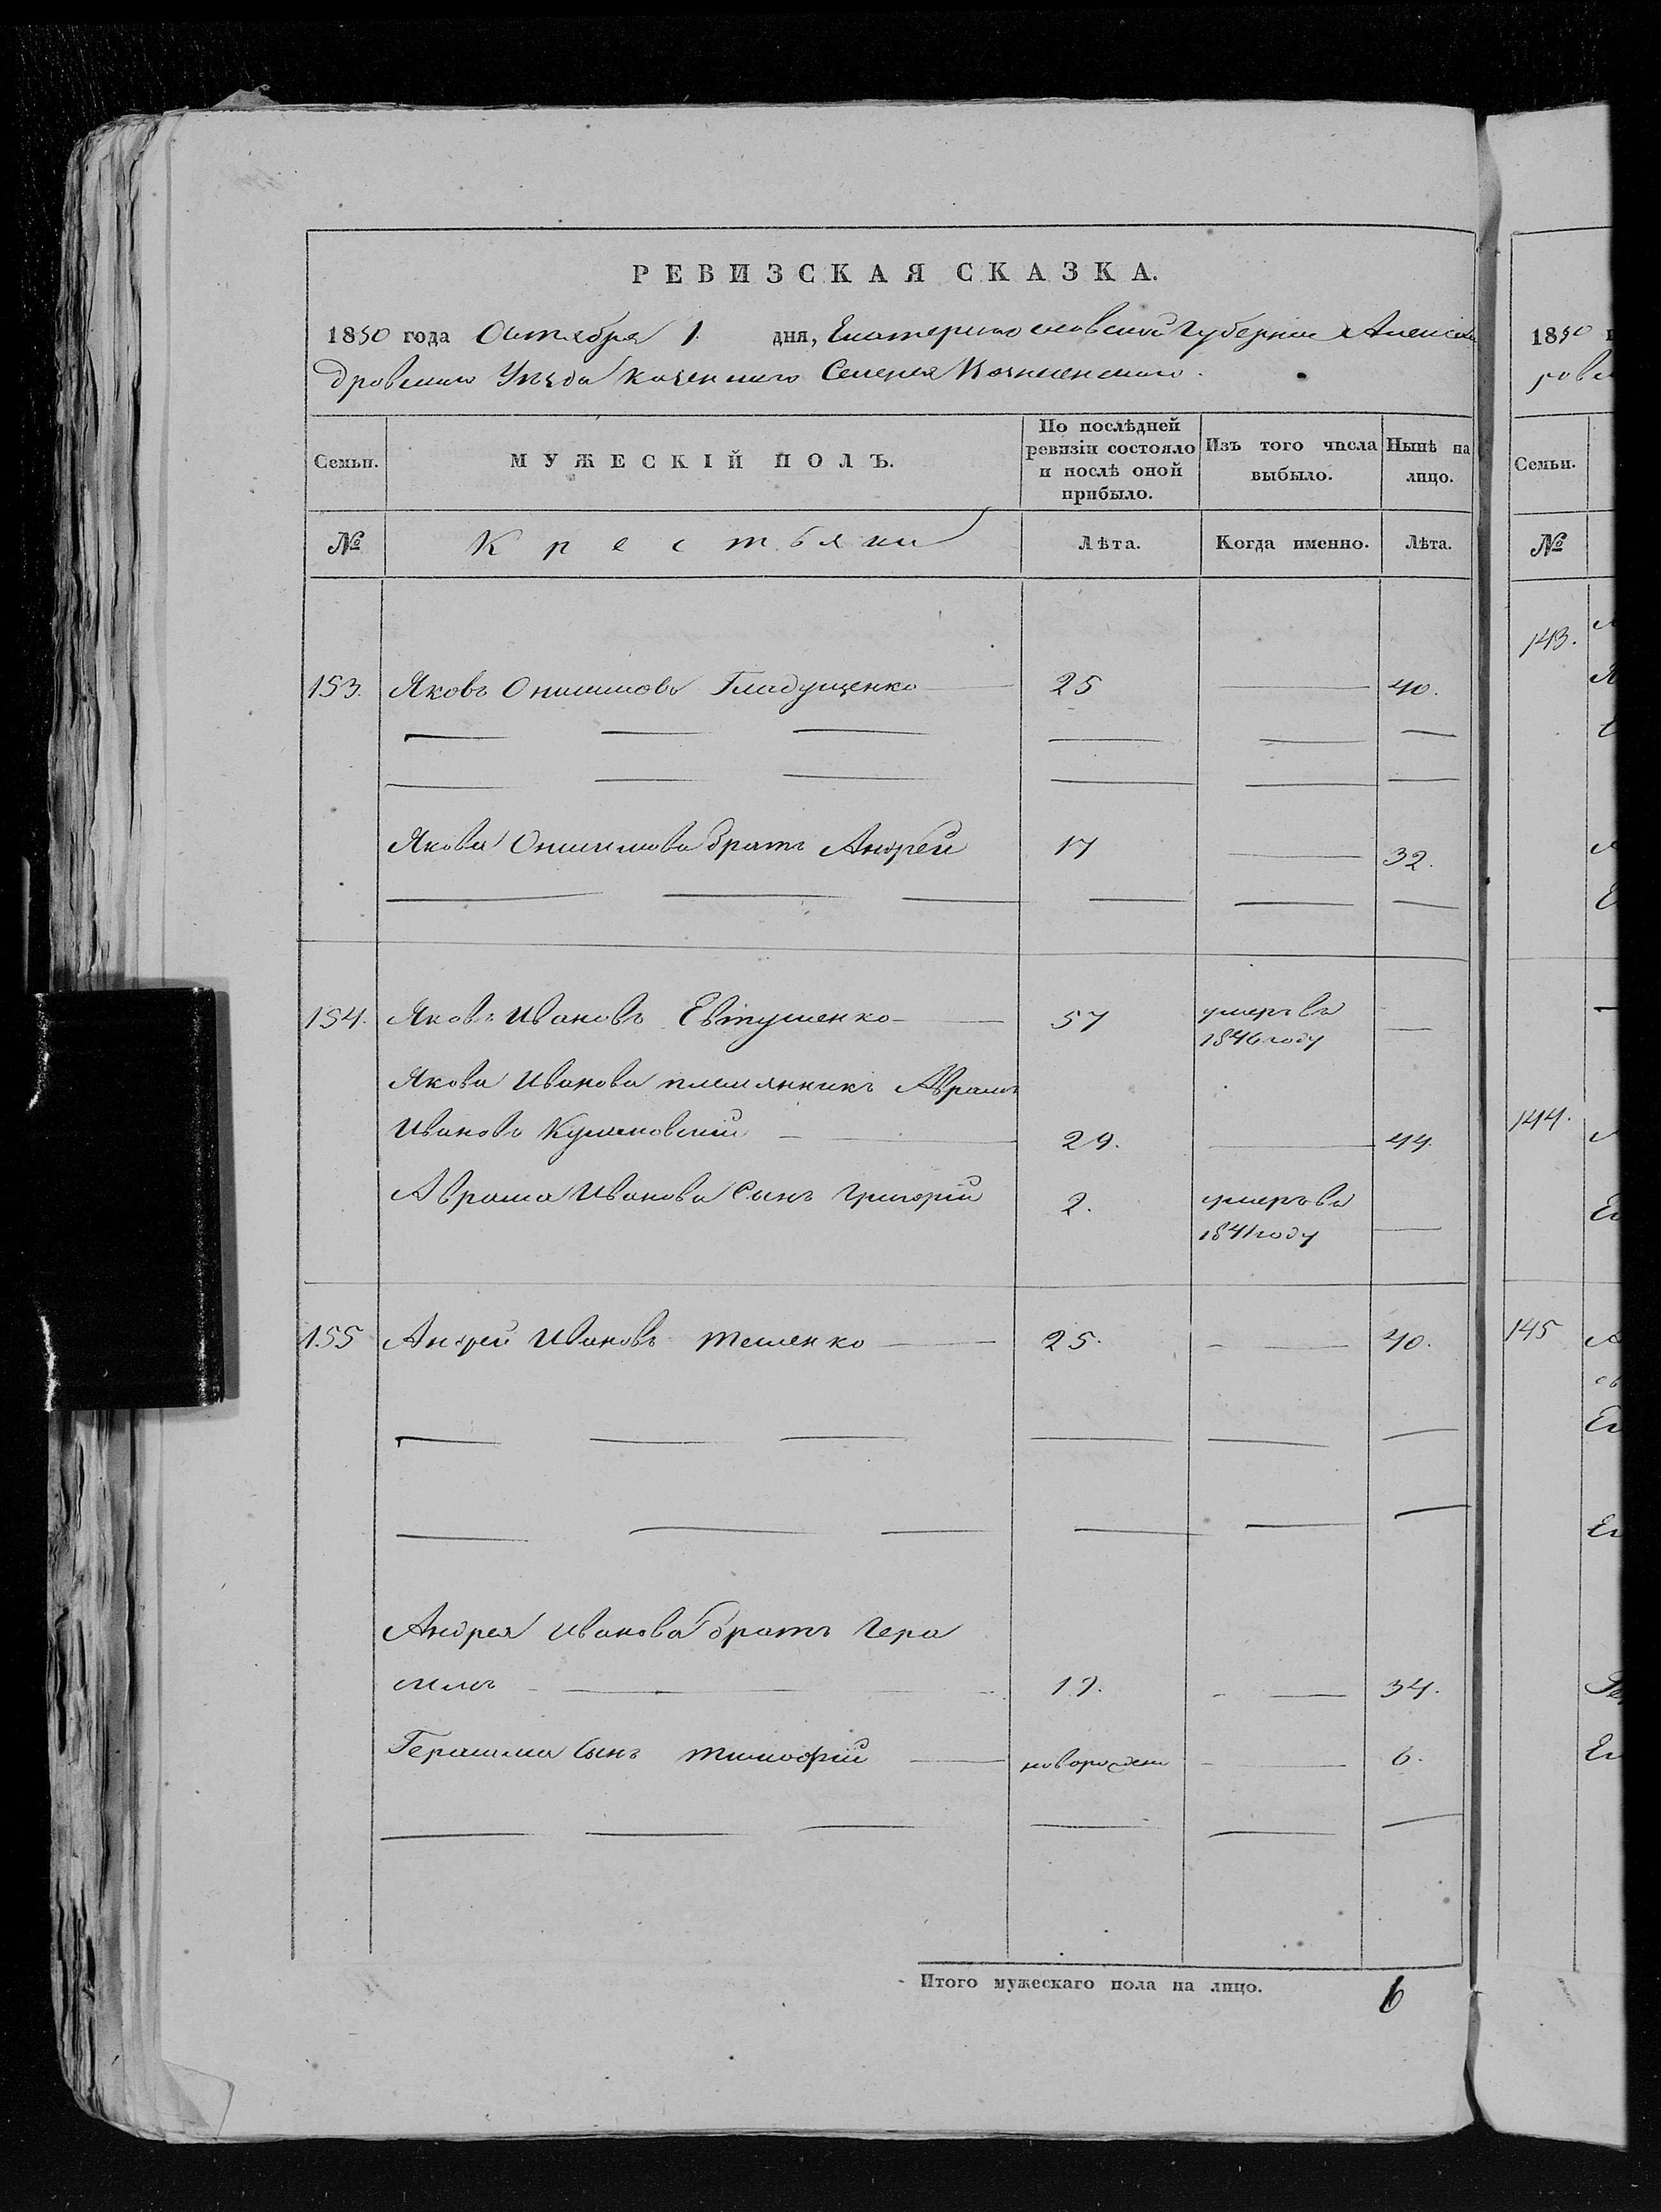 РЕВИЗСКАЯ СКАЗКА.
1850 года Октября 1. дня, Екатеринославской Губерніи Алексан
дровскаго Уѣзда казеннаго Селенія
Семьи. МУЖЕСКІЙ ПОЛЪ. По послѣдней ревизіи состояло и послѣ оной прибыло. Изъ того числа выбыло. Нынѣ на лицо.
№ Крестьяни Лѣта. Когда именно. Лѣта.
153. Яковъ Онисимовъ Гладущенко 25 40.
Якова Онисимова братъ Андрей 17 32.
154. Яковъ Ивановъ Евтушенко 57 умеръ въ
1846 году
Якова Иванова племянникъ Аврамъ
Ивановъ 29. 44.
Аврама Иванова Сынъ Григорій 2. умеръ въ
1841 году
155 Андрей Ивановъ Тешенко 25. 40.
Андрея Иванова братъ Гера
симъ 19. 34.
Герасима Сынъ Тимофій новорожден 6.
Итого мужескаго пола на лицо. 6
1850
Семьи.
№
143.
144.
145